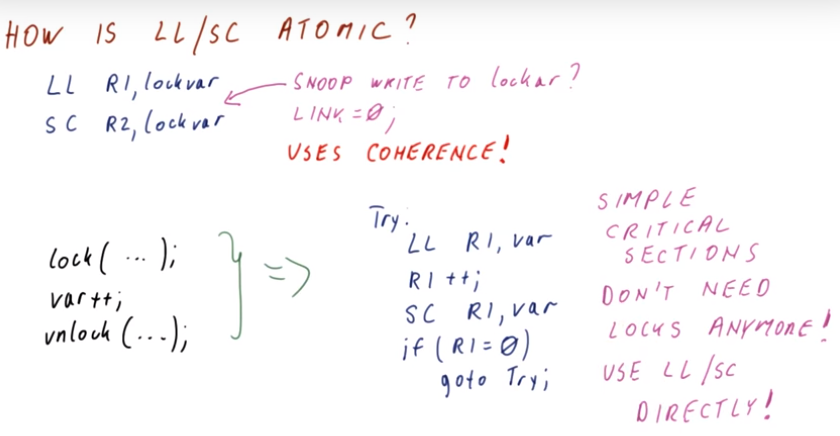 HOW IS LL/SC ATOMIC?
LL R1, lockvar
SC R2, lockvar
SNOOP WRITE TO lockar?
LINK = 0;
USES COHERENCE!
lock( ... );
var++;
unlock (...);
=>
Try:
LL R1, var
R1 ++;
SC R1, var
if (R1 = 0)
goto Try;
SIMPLE
CRITICAL
SECTIONS
DON'T NEED
LOCKS ANYMORE!
USE LL/SC
DIRECTLY!